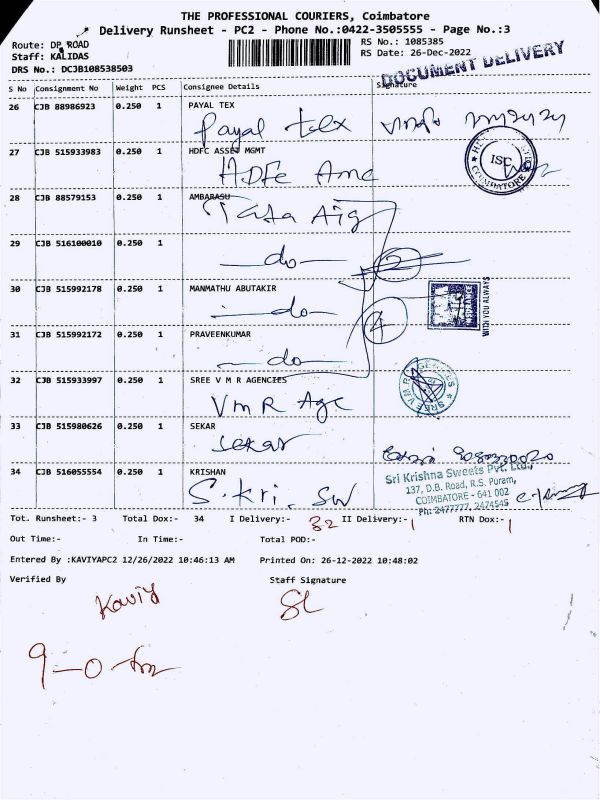 THE PROFESSIONAL COURIERS, Coimbatore
Delivery Runsheet - PC2 - Phone No.:0422-3505555 - Page No.:3
Route: DP ROAD
RS No.: 1085385
Staff: KALIDAS
RS Date: 26-Dec-2022
DRS No.: DCJB108538503
DOCUMENT DELIVERY
S No Consignment No Weight PCS Consignee Details Signature
26 CJB 88986923 0.250 1 PAYAL TEX
Payal tex
27 CJB 515933983 0.250 1 HDFC ASSET MGMT
HDFC Amc
ISC
COIMBATORE
28 CJB 88579153 0.250 1 AMBARASU
Tata Aig
29 CJB 516100010 0.250 1
-do-
30 CJB 515992178 0.250 1 MANMATHU ABUTAKIR
-do-
4
WITH YOU ALWAYS
31 CJB 515992172 0.250 1 PRAVEENKUMAR
-do-
32 CJB 515933997 0.250 1 SREE V M R AGENCIES
VMR Agc
SREE V.M.R. AGENCIES
33 CJB 515980626 0.250 1 SEKAR
Sekar
34 CJB 516055554 0.250 1 KRISHAN
S. kri. Sw
Sri Krishna Sweets Pvt. Ltd.,
137, D.B. Road, R.S. Puram,
COIMBATORE - 641 002
Ph: 2477777, 2474545
Tot. Runsheet:- 3 Total Dox:- 34 I Delivery:- 32 II Delivery:- 1 RTN Dox:- 1
Out Time:- In Time:- Total POD:-
Entered By :KAVIYAPC2 12/26/2022 10:46:13 AM Printed On: 26-12-2022 10:48:02
Verified By Staff Signature
Kaviy